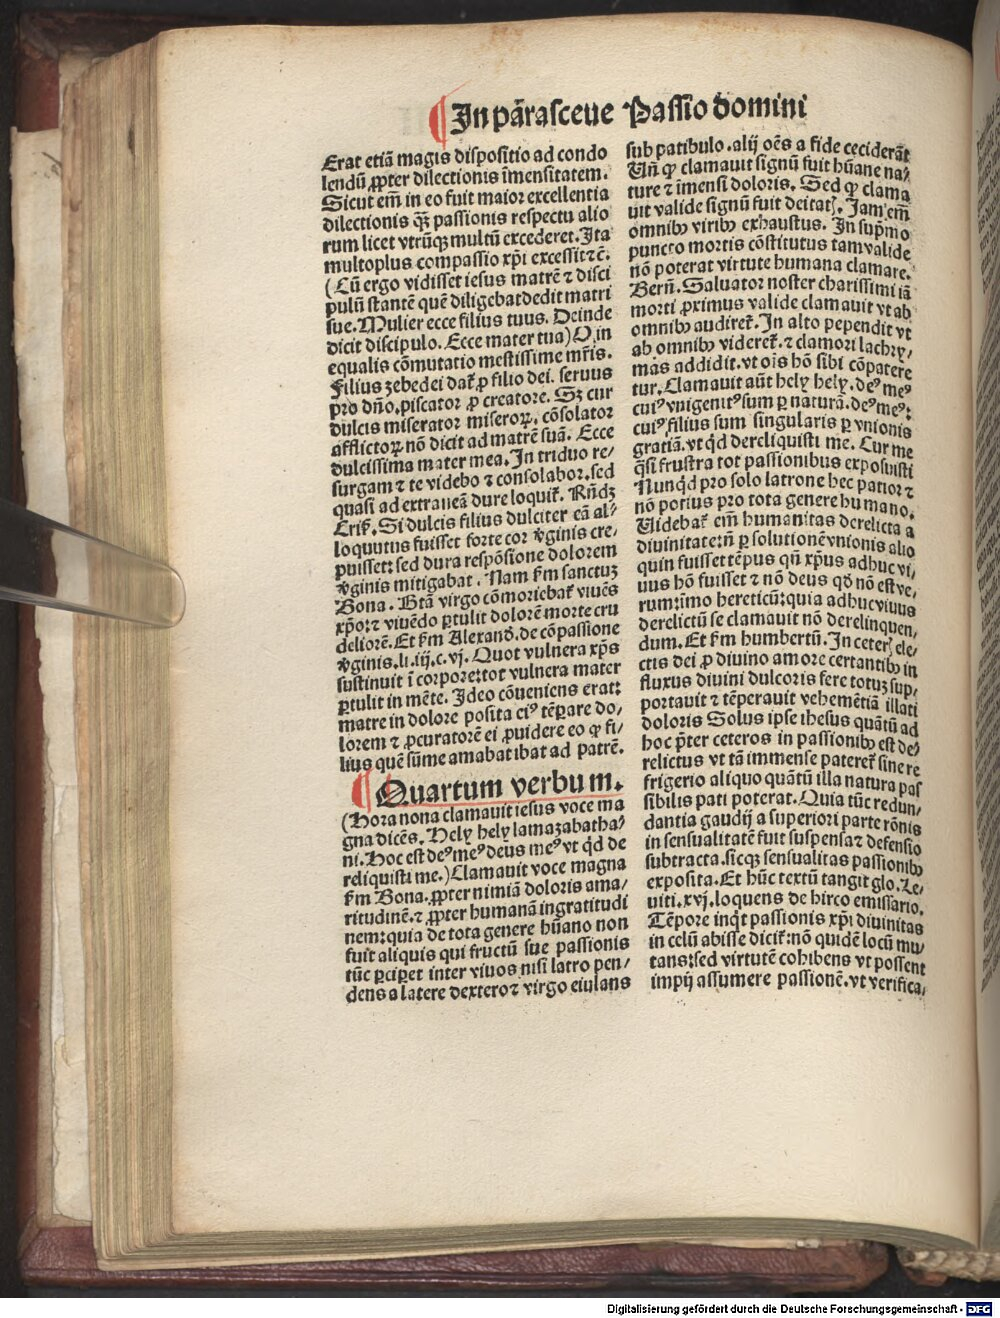 ¶In pãrasceue Passio domini
Erat etiã magis dispositio ad condo
lendũ ꝓpter dilectionis ĩmensitatem.
Sicut em̃ in eo fuit maior excellentia
dilectionis qꝫ passionis respectu alio
rum licet vtrũqꝫ multũ excederet. Ita
multoplus compassio xp̃i excessit ⁊ c̃.
(Cũ ergo vidisset iesus matrẽ ⁊ disci
pulũ stantẽ quẽ diligebat dedit matri
sue. Mulier ecce filius tuus. Deinde
dicit discipulo. Ecce mater tua) O in
equalis cõmutatio mestissime mr̃is.
Filius zebedei dat̃ ꝓ filio dei. seruus
pro dño. piscator ꝓ creatore. Sꝫ cur
dulcis miserator miseroꝝ. cõsolator
afflictoꝝ nõ dicit ad matrẽ suã. Ecce
dulcissima mater mea. In triduo re⸗
surgam ⁊ te videbo ⁊ consolabor. sed
quasi ad extraneã dure loquit̃. Rñdꝫ
Crix̃. Si dulcis filius dulciter eã al⸗
loquutus fuisset forte cor v̾ginis cre⸗
puisset: sed dura respõsione dolorem
v̾ginis mitigabat. Nam fm̃ sanctuꝫ
Bona. Btã virgo cõmoriebat̃ viuẽs
xp̃o: ⁊ viuẽdo ꝑtulit dolorẽ morte cru
deliorẽ. Et fm̃ Alexand̾. de cõpassione
v̾ginis. li. iij. c. vj. Quot vulnera xp̃s
sustinuit ĩ corpore: tot vulnera mater
ꝑtulit in mẽte. Ideo cõueniens erat:
matre in dolore posita ei⁹ tẽꝑare do⸗
lorem ⁊ ꝓcuratorẽ ei ꝓuidere eo ꝙ fi⸗
lius quẽ sũme amabat ibat ad patrẽ.
¶Quartum verbum.
(Hora nona clamauit iesus voce ma
gna dicẽs. Hely hely lamazabatha⸗
ni. Hoc est de⁹ me⁹ deus me⁹ vt qd̾ de
reliquisti me.) Clamauit voce magna
fm̃ Bona. ꝓpter nimiã doloris ama⸗
ritudinẽ. ⁊ ꝓpter humanã ingratitudi
nem: quia de tota genere hũano non
fuit aliquis qui fructũ sue passionis
tũc ꝑciꝑet inter viuos nisi latro pen⸗
dens a latere dextero ⁊ virgo eiulans
sub patibulo. alij oẽs a fide ceciderãt
Uñ ꝙ clamauit signũ fuit hũane na⸗
ture ⁊ ĩmensi doloris. Sed ꝙ clama
uit valide signũ fuit deitatꝭ. Jam em̃
omnibꝰ viribꝰ exhaustus. In sup̃mo
puncto mortis cõstitutus tam valide
nõ poterat virtute humana clamare.
Bern̾. Saluator noster charissimi iã
morti ꝓximus valide clamauit vt ab
omnibꝰ audiret̃. In alto pependit vt
ab omnibꝰ videret̃. ⁊ clamori lachry⸗
mas addidit. vt oĩs hõ sibi cõpatere
tur. Clamauit aũt hely hely. de⁹ me⁹
cui⁹ vnigenit⁹ sum ꝑ naturã. de⁹ me⁹:
cui⁹ filius sum singularis ꝑ vnionis
gratiã. vt qd̾ dereliquisti me. Cur me
q̃si frustra tot passionibus exposuisti
Nunqd̾ pro solo latrone hec patior ⁊
nõ potius pro tota genere humano.
Uidebat̃ em̃ humanitas derelicta a
diuinitate: nõ ꝑ solutionẽ vnionis alio
quin fuisset tẽpus qñ xp̃us adhuc vi⸗
uus hõ fuisset ⁊ nõ deus qd̾ nõ est ve⸗
rum: ĩmo hereticũ: quia adhuc viuus
derelictũ se clamauit nõ derelinquen⸗
dum. Et fm̃ humbertũ. In ceterꝭ ele⸗
ctis dei ꝓ diuino amore certantibꝰ in
fluxus diuini dulcoris fere totuꝫ sup⸗
portauit ⁊ tẽperauit vehemẽtiã illati
doloris Solus ipse ihesus quãtũ ad
hoc p̃ter ceteros in passionibꝰ est de⸗
relictus vt tã immense pateret̃ sine re
frigerio aliquo quãtũ illa natura pas
sibilis pati poterat. Quia tũc redun⸗
dantia gaudij a superiori parte rõnis
in sensualitatẽ fuit suspensa ⁊ defensio
subtracta. sicqꝫ sensualitas passionibꝰ
exposita. Et hũc textũ tangit glo. Le⸗
uiti. xvj. loquens de hirco emissario.
Tẽpore inqt̾ passionis xp̃i diuinitas
in celũ abisse dicit̃: nõ quidẽ locũ mu⸗
tans: sed virtutẽ cohibens vt possent
impij assumere passionẽ. vt verifica⸗
Digitalisierung gefördert durch die Deutsche Forschungsgemeinschaft - DFG